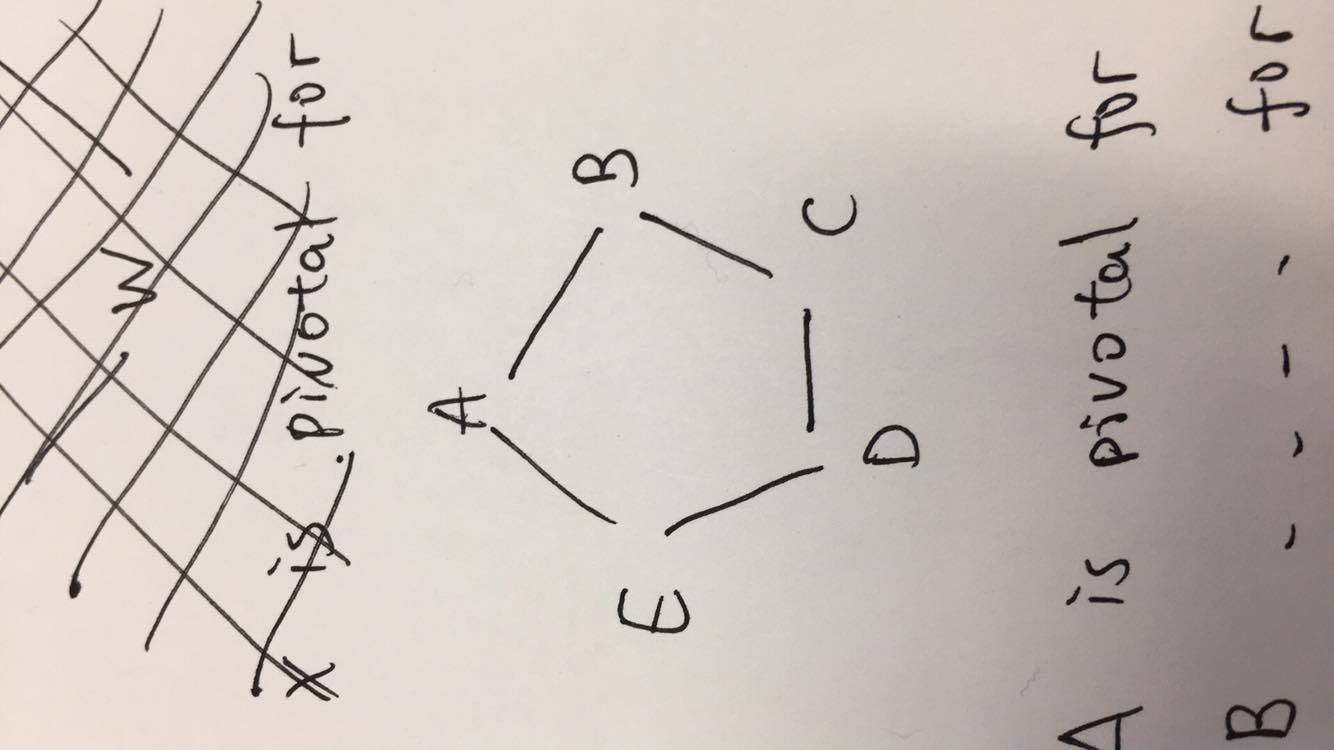 W
X is pivotal for
A
E B
D C
A is pivotal for
B - - - - for